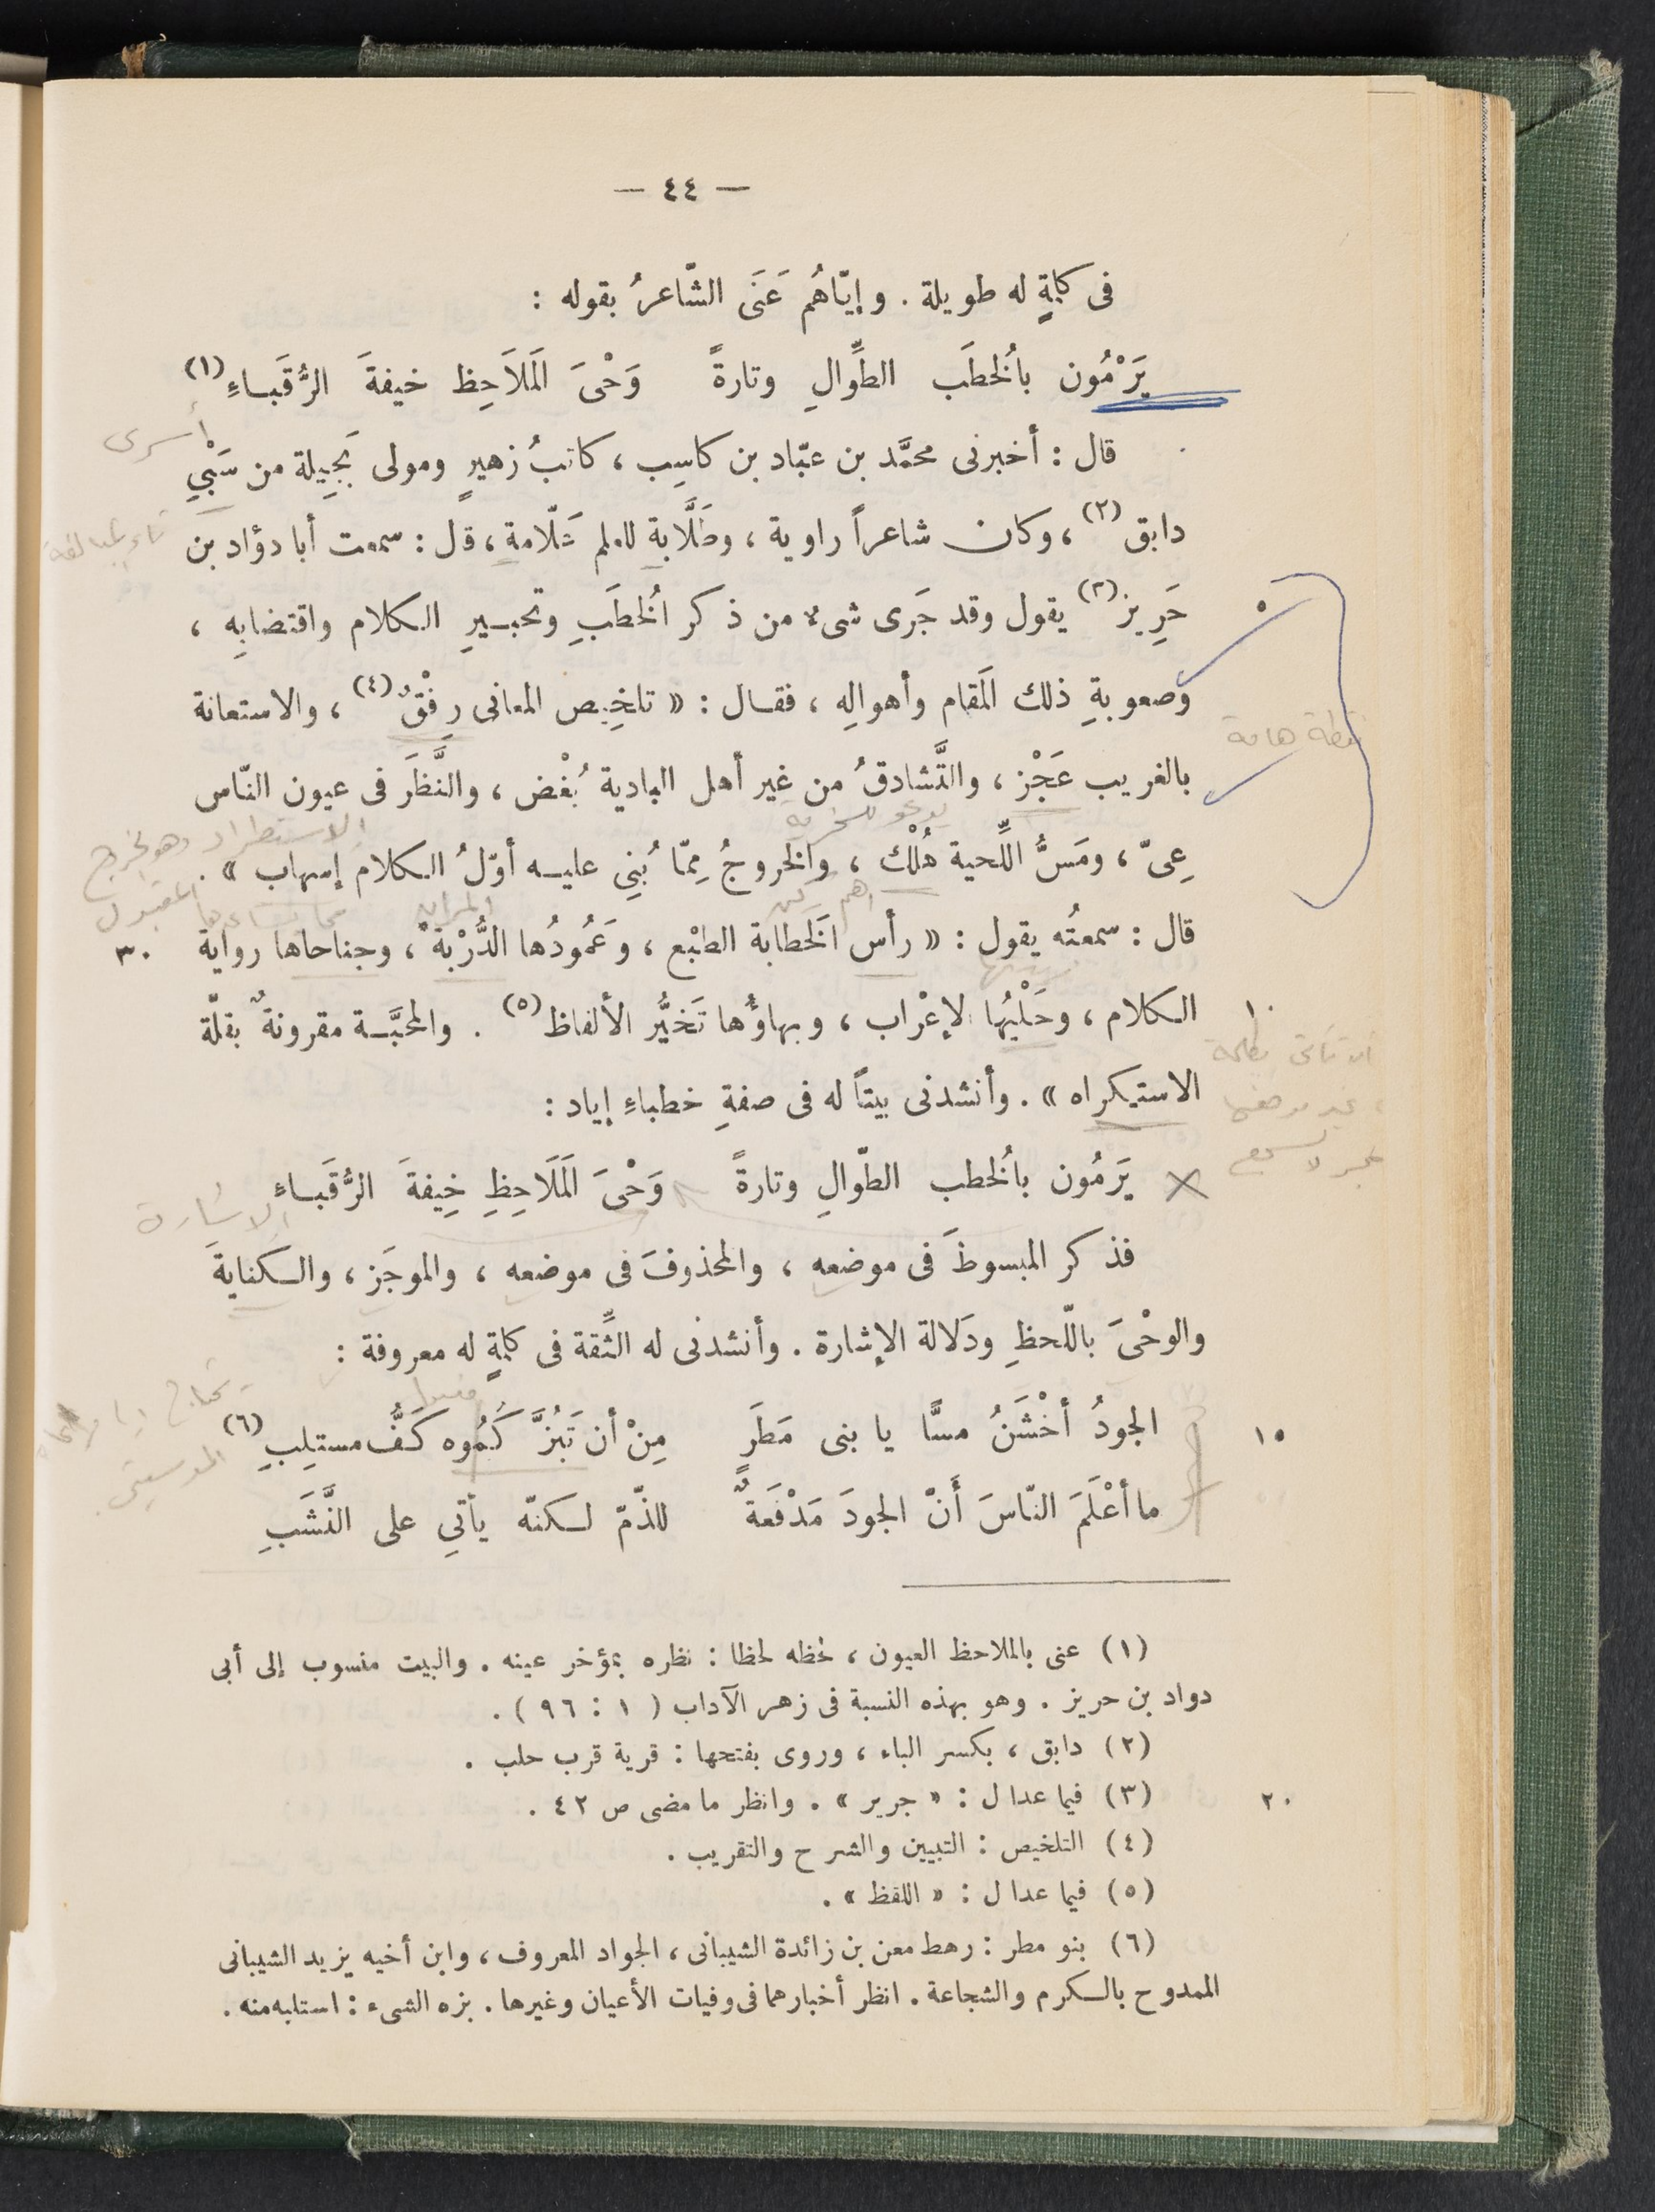 — ٤٤ —
فى كلمةٍ له طويلة . وإيّاهُم عَنَى الشّاعرُ بقوله :
يَرْمُون بالُخطَب الطِّوالِ وتارةً وَحْىَ الَملاَحِظ خيفةَ الرُّقَباءِ (١)
أسرى
قال : أخبرنى محمَّد بن عبّاد بن كاسِب ، كاتبُ زهيرٍ ومولى بَجِيلة من سَبْيِ
دابق (٢) ، وكان شاعراً راوية ، وطَلَّابةِ للعلم عَلّامةِ ، قال : سمعت أبا دؤاد بن
تاء للمبالغة
حَرِيز (٣) يقول وقد جَرى شىءٌ من ذكر الُخطَبِ وتحبيرِ الكلام واقتضابِهِ ،
٥
وصعوبةِ ذلك الَمقام وأهوالِهِ ، فقال : « تلخِيص المعانى رِفْقٌ (٤) ، والاستعانة
نقطة هامة
بالغريب عَجْز ، والتَّشادقُ من غير أهل البادية بُغْض ، والنَّظَر فى عيون النّاس
يدعو للسخرية
الاستطراد وهو الخروج
عِىّ ، ومَسُّ اللِّحية هُلْك ، والخروجُ مِمّا بُنِي عليه أوّلُ الكلام إسهاب » .
أهم ركن
المران
قال : سمعتُه يقول : « رأس الَخطابة الطبْع ، وعَمُودُها الدُّرْبة ، وجناحاها رواية
٣٠
الكلام ، وحَلْيُها الإعْراب ، وبهاؤُها تَخيُّر الألفاظ (٥) . والمحبَّة مقرونةٌ بقلّة
١٠
الاستكراه » . وأنشدنى بيتاً له فى صفةِ خطباءِ إياد :
يَرَمُون بالُخطب الطّوالِ وتارةً وَحْىَ الَملَاحِظِ خِيفةَ الرُّقَباءِ
الإشارة
فذكر المبسوطَ فى موضعه ، والمحذوفَ فى موضعه ، والموجَز ، والكنايةَ
والوحْىَ باللّحظِ ودَلالة الإشارة . وأنشدنى له الثِّقة فى كلمةٍ له معروفة :
الجودُ أخْشَنُ مسًّا يا بنى مَطَرٍ مِنْ أن تَبُزَّكُمُوه كَفُّ مستلِبِ (٦)
١٥
ما أعْلَمَ النّاسَ أَنّ الجودَ مَدْفَعَةٌ للذّمّ لكنّه يأتِي على النَّشَبِ
(١) عنى بالملاحظ العيون ، لحظه لحظا : نظره بمؤخر عينه . والبيت منسوب إلى أبى
دواد بن حريز . وهو بهذه النسبة فى زهر الآداب ( ١ : ٩٦ ) .
(٢) دابق ، بكسر الباء ، وروى بفتحها : قرية قرب حلب .
(٣) فيما عدا ل : « جرير » . وانظر ما مضى ص ٤٢ .
٢٠
(٤) التلخيص : التبيين والشرح والتقريب .
(٥) فيما عدا ل : « اللفظ » .
(٦) بنو مطر : رهط معن بن زائدة الشيبانى ، الجواد المعروف ، وابن أخيه يزيد الشيبانى
الممدوح بالكرم والشجاعة . انظر أخبارهما فى وفيات الأعيان وغيرها . بزه الشىء : استلبه منه .